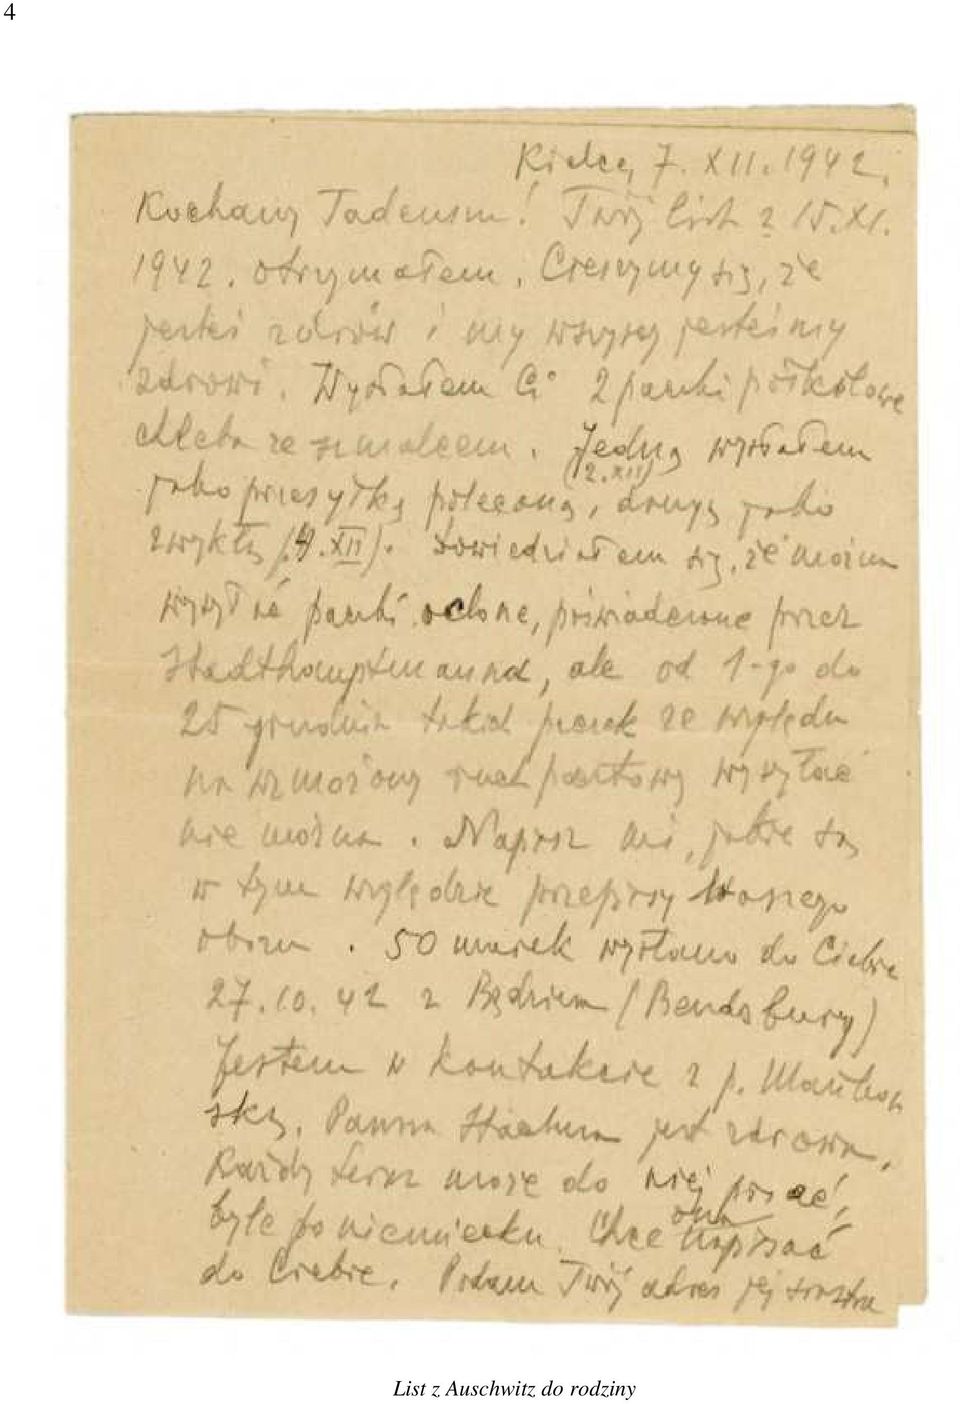 4
Kielce, 7. XII. 1942.
Kochany Tadeuszu! Twój list z 15. XI.
1942. otrzymałem. Cieszymy się, że
jesteś zdrów i my wszyscy jesteśmy
zdrowi. Wysłałem Ci 2 paczki półkilowe
chleba ze smalcem. Jedną wysłałem
(2. XII)
jako przesyłkę poleconą, drugą jako
zwykłą (4. XII). Dowiedziałem się, że można
wysyłać paczki oclone, poświadczone przez
Stadthauptmanna, ale od 1-go do
25 grudnia takich paczek ze względu
na wzmożony ruch pocztowy wysyłać
nie można. Napisz mi, jakie są
w tym względzie przepisy Waszego
obozu. 50 marek wysłano do Ciebie
27. 10. 42 z Będzina (Bendsburg)
Jestem w kontakcie z p.
ską. Panna jest zdrowa.
Każdy teraz może do niej pisać,
byle po niemiecku. Chce ona napisać
do Ciebie. Podam Twój adres jej
List z Auschwitz do rodziny